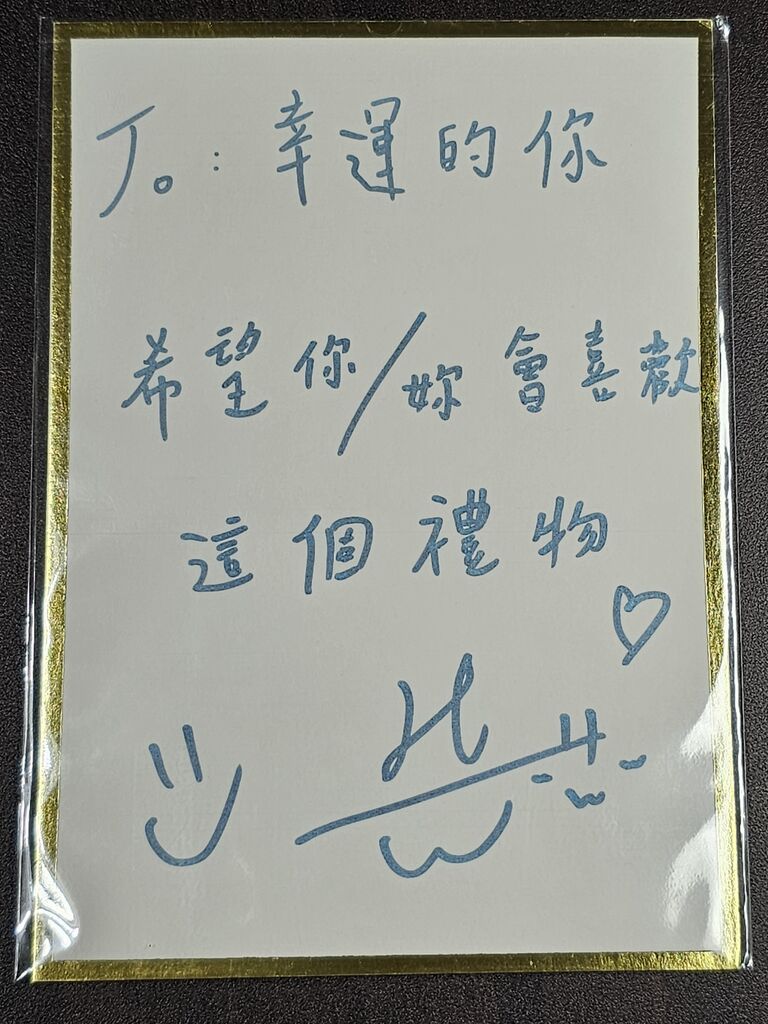 To：幸運的你
希望你/妳會喜歡
這個禮物